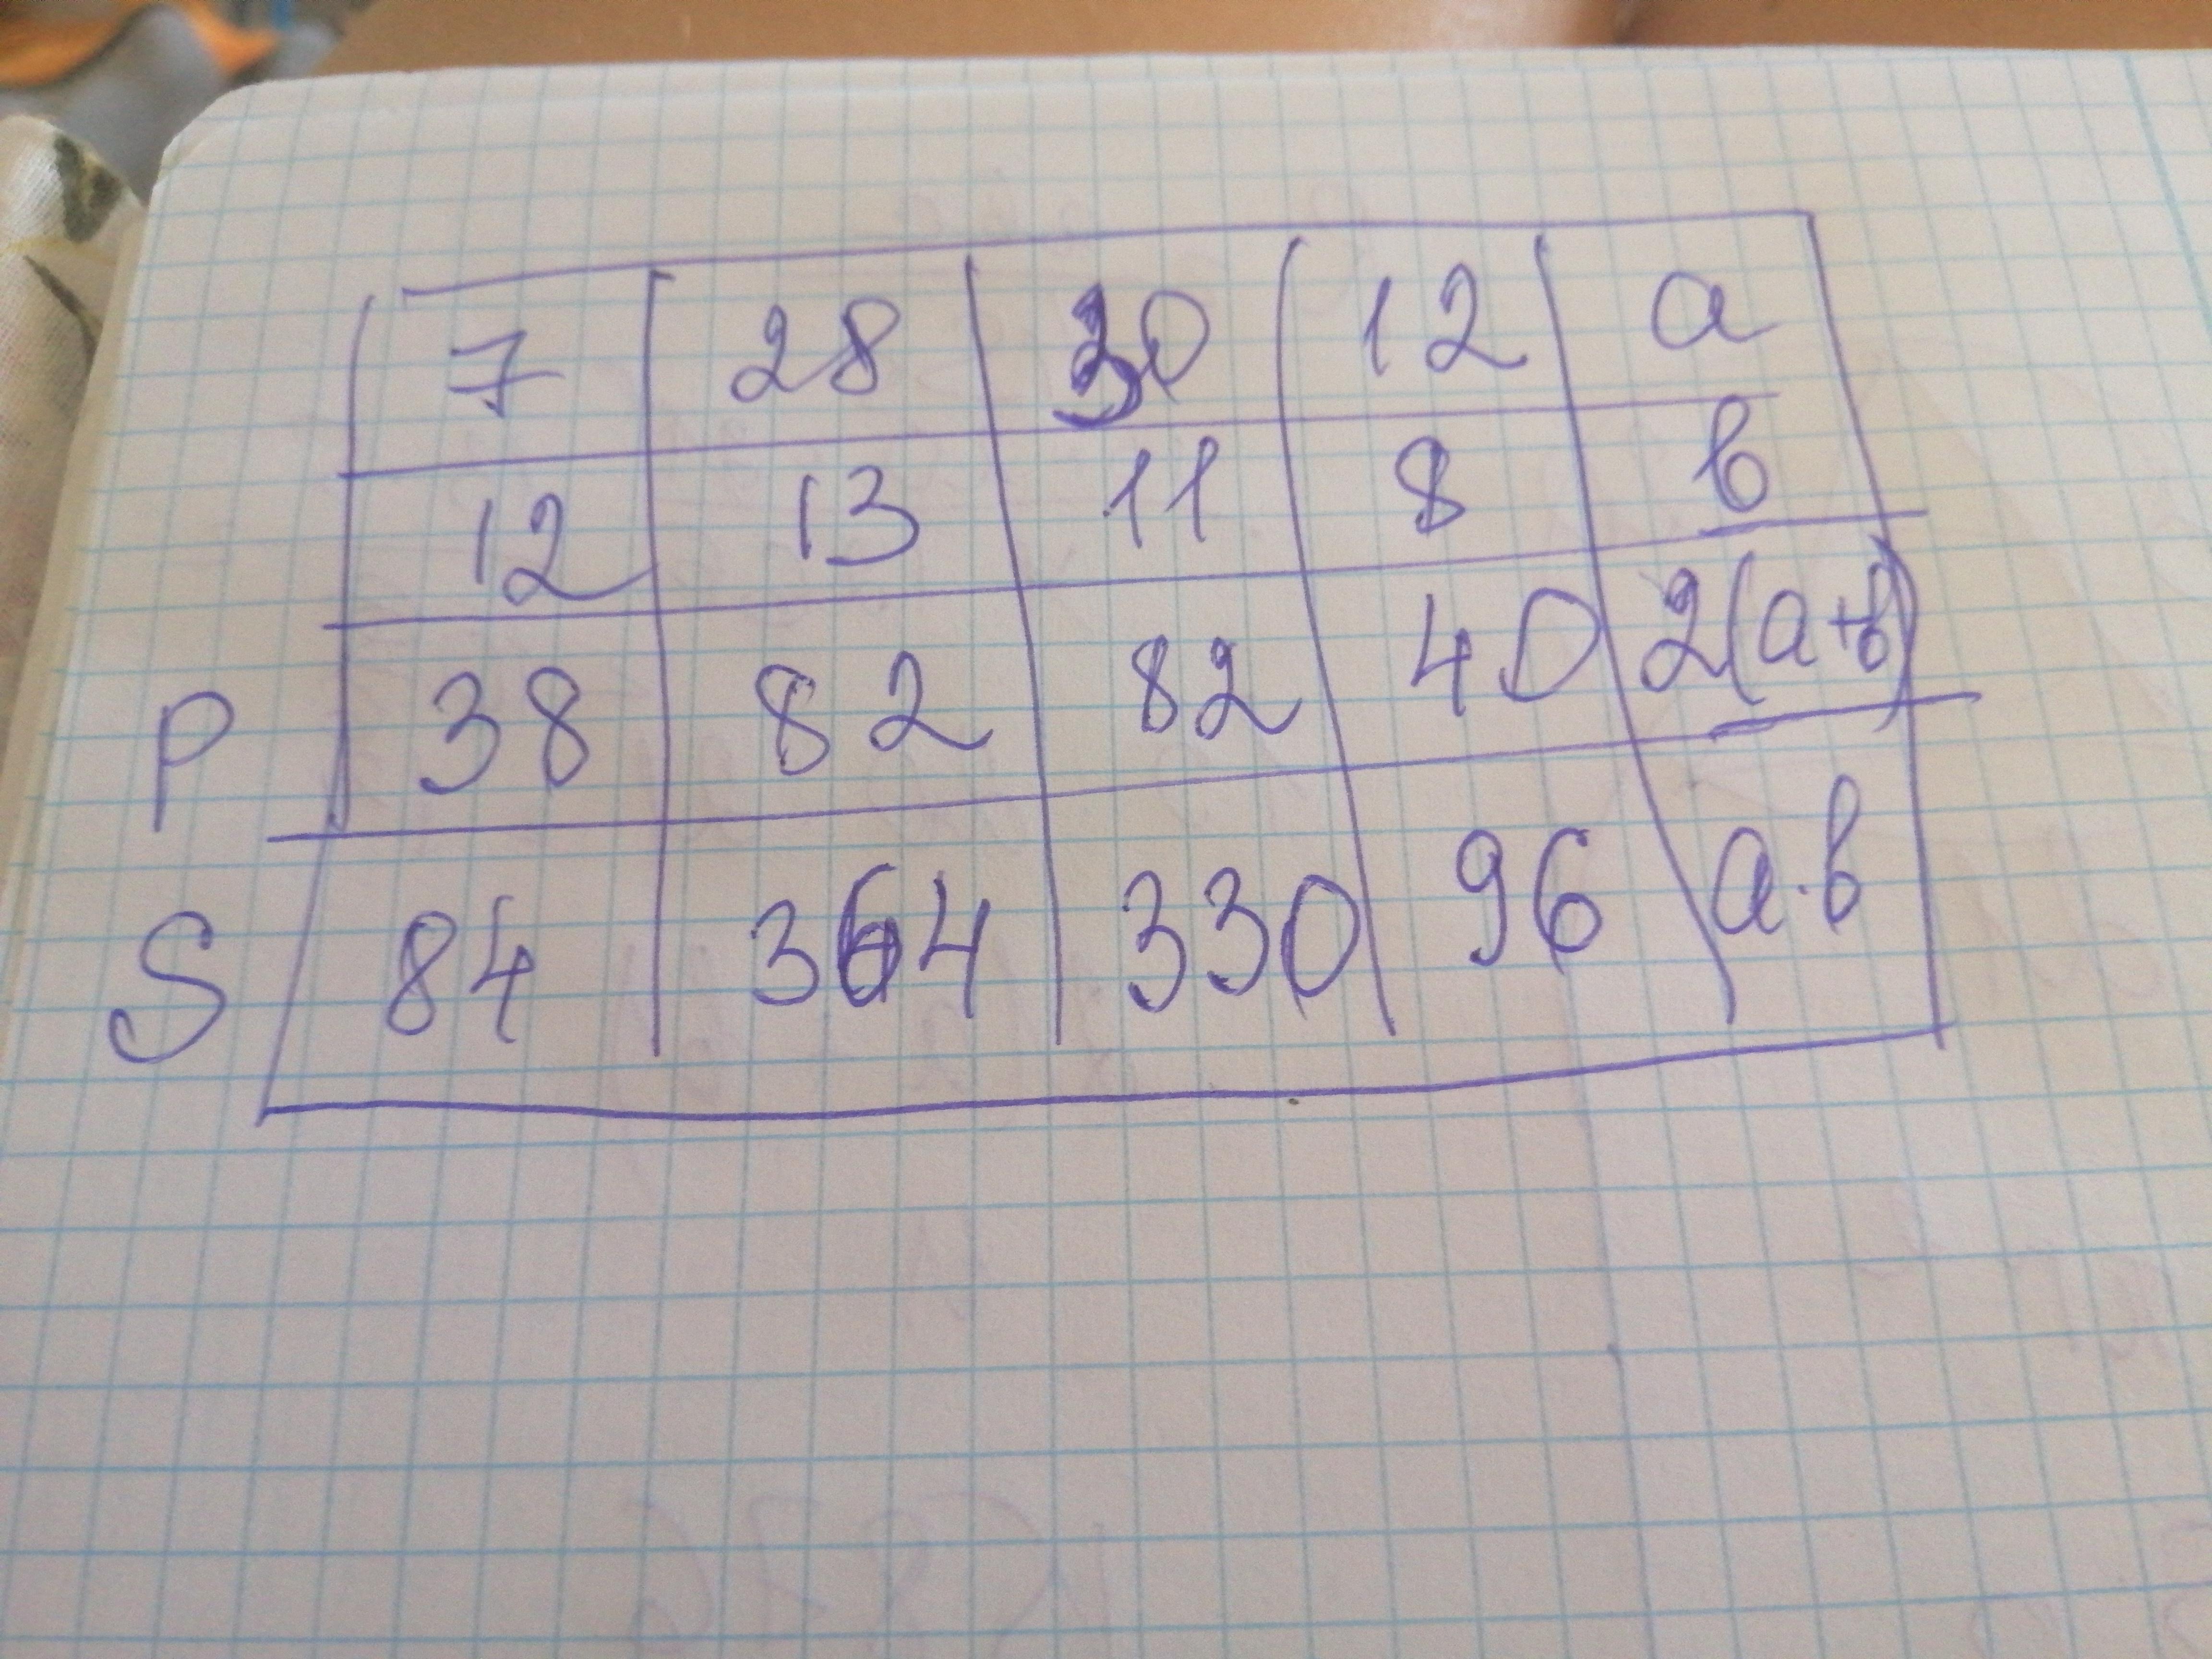 7 28 30 12 a
12 13 11 8 в
P 38 82 82 40 2(a+в)
S 84 364 330 96 a·в